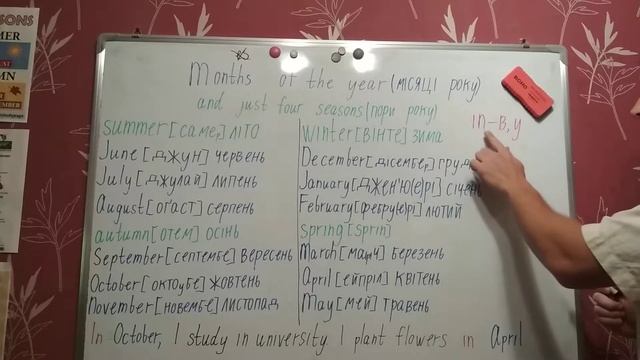 SONS
MER
MN
MBER
Months of the year (місяці року)
and just four seasons (пори року)
in-в, у
summer [саме] літо
June [джун] червень
July [джулай] липень
August [огаст] серпень
autumn [отем] осінь
September [септембе] вересень
October [октоубе] жовтень
November [новембе] листопад
winter [вінте] зима
December [дісембе] груд
January [джен'ю(е)рі] січень
February [фебру(ю)рі] лютий
spring [sprin]
March [мач] березень
April [ейпріл] квітень
May [мей] травень
In October, I study in university I plant flowers in April